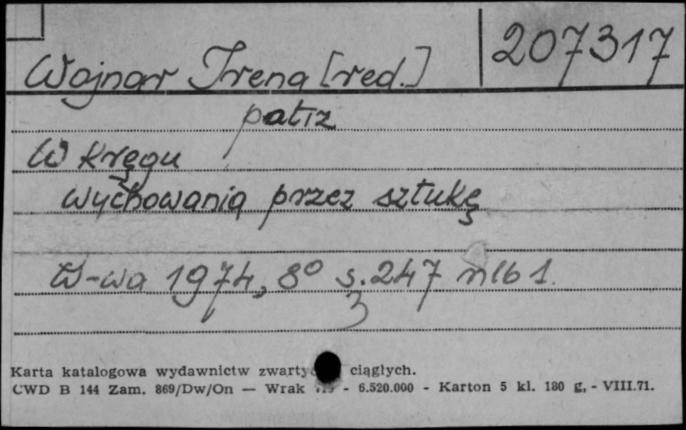 Wojnar Irena [red.] 207317
patrz
W kręgu
wychowania przez sztukę
W-wa 1974, 8° s. 247 nlb 1.
Karta katalogowa wydawnictw ciągłych.
CWD B 144 Zam. 869/Dw/On — Wrak - 6.520.000 - Karton 5 kl. 180 g. - VIII.71.